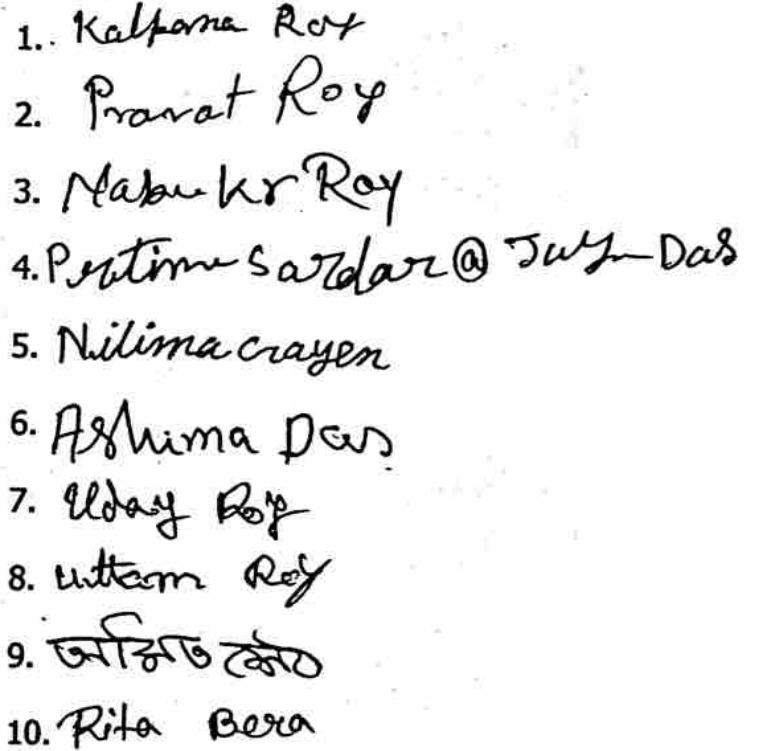 1. Kalpana Roy
2. Pravat Roy
3. Nabu kr Roy
4. Pratima Sardar @ Das
5. Nilima Gayen
6. Ashima Das
7. Uday Roy
8. Uttam Roy
9. অমিত
10. Rita Bera